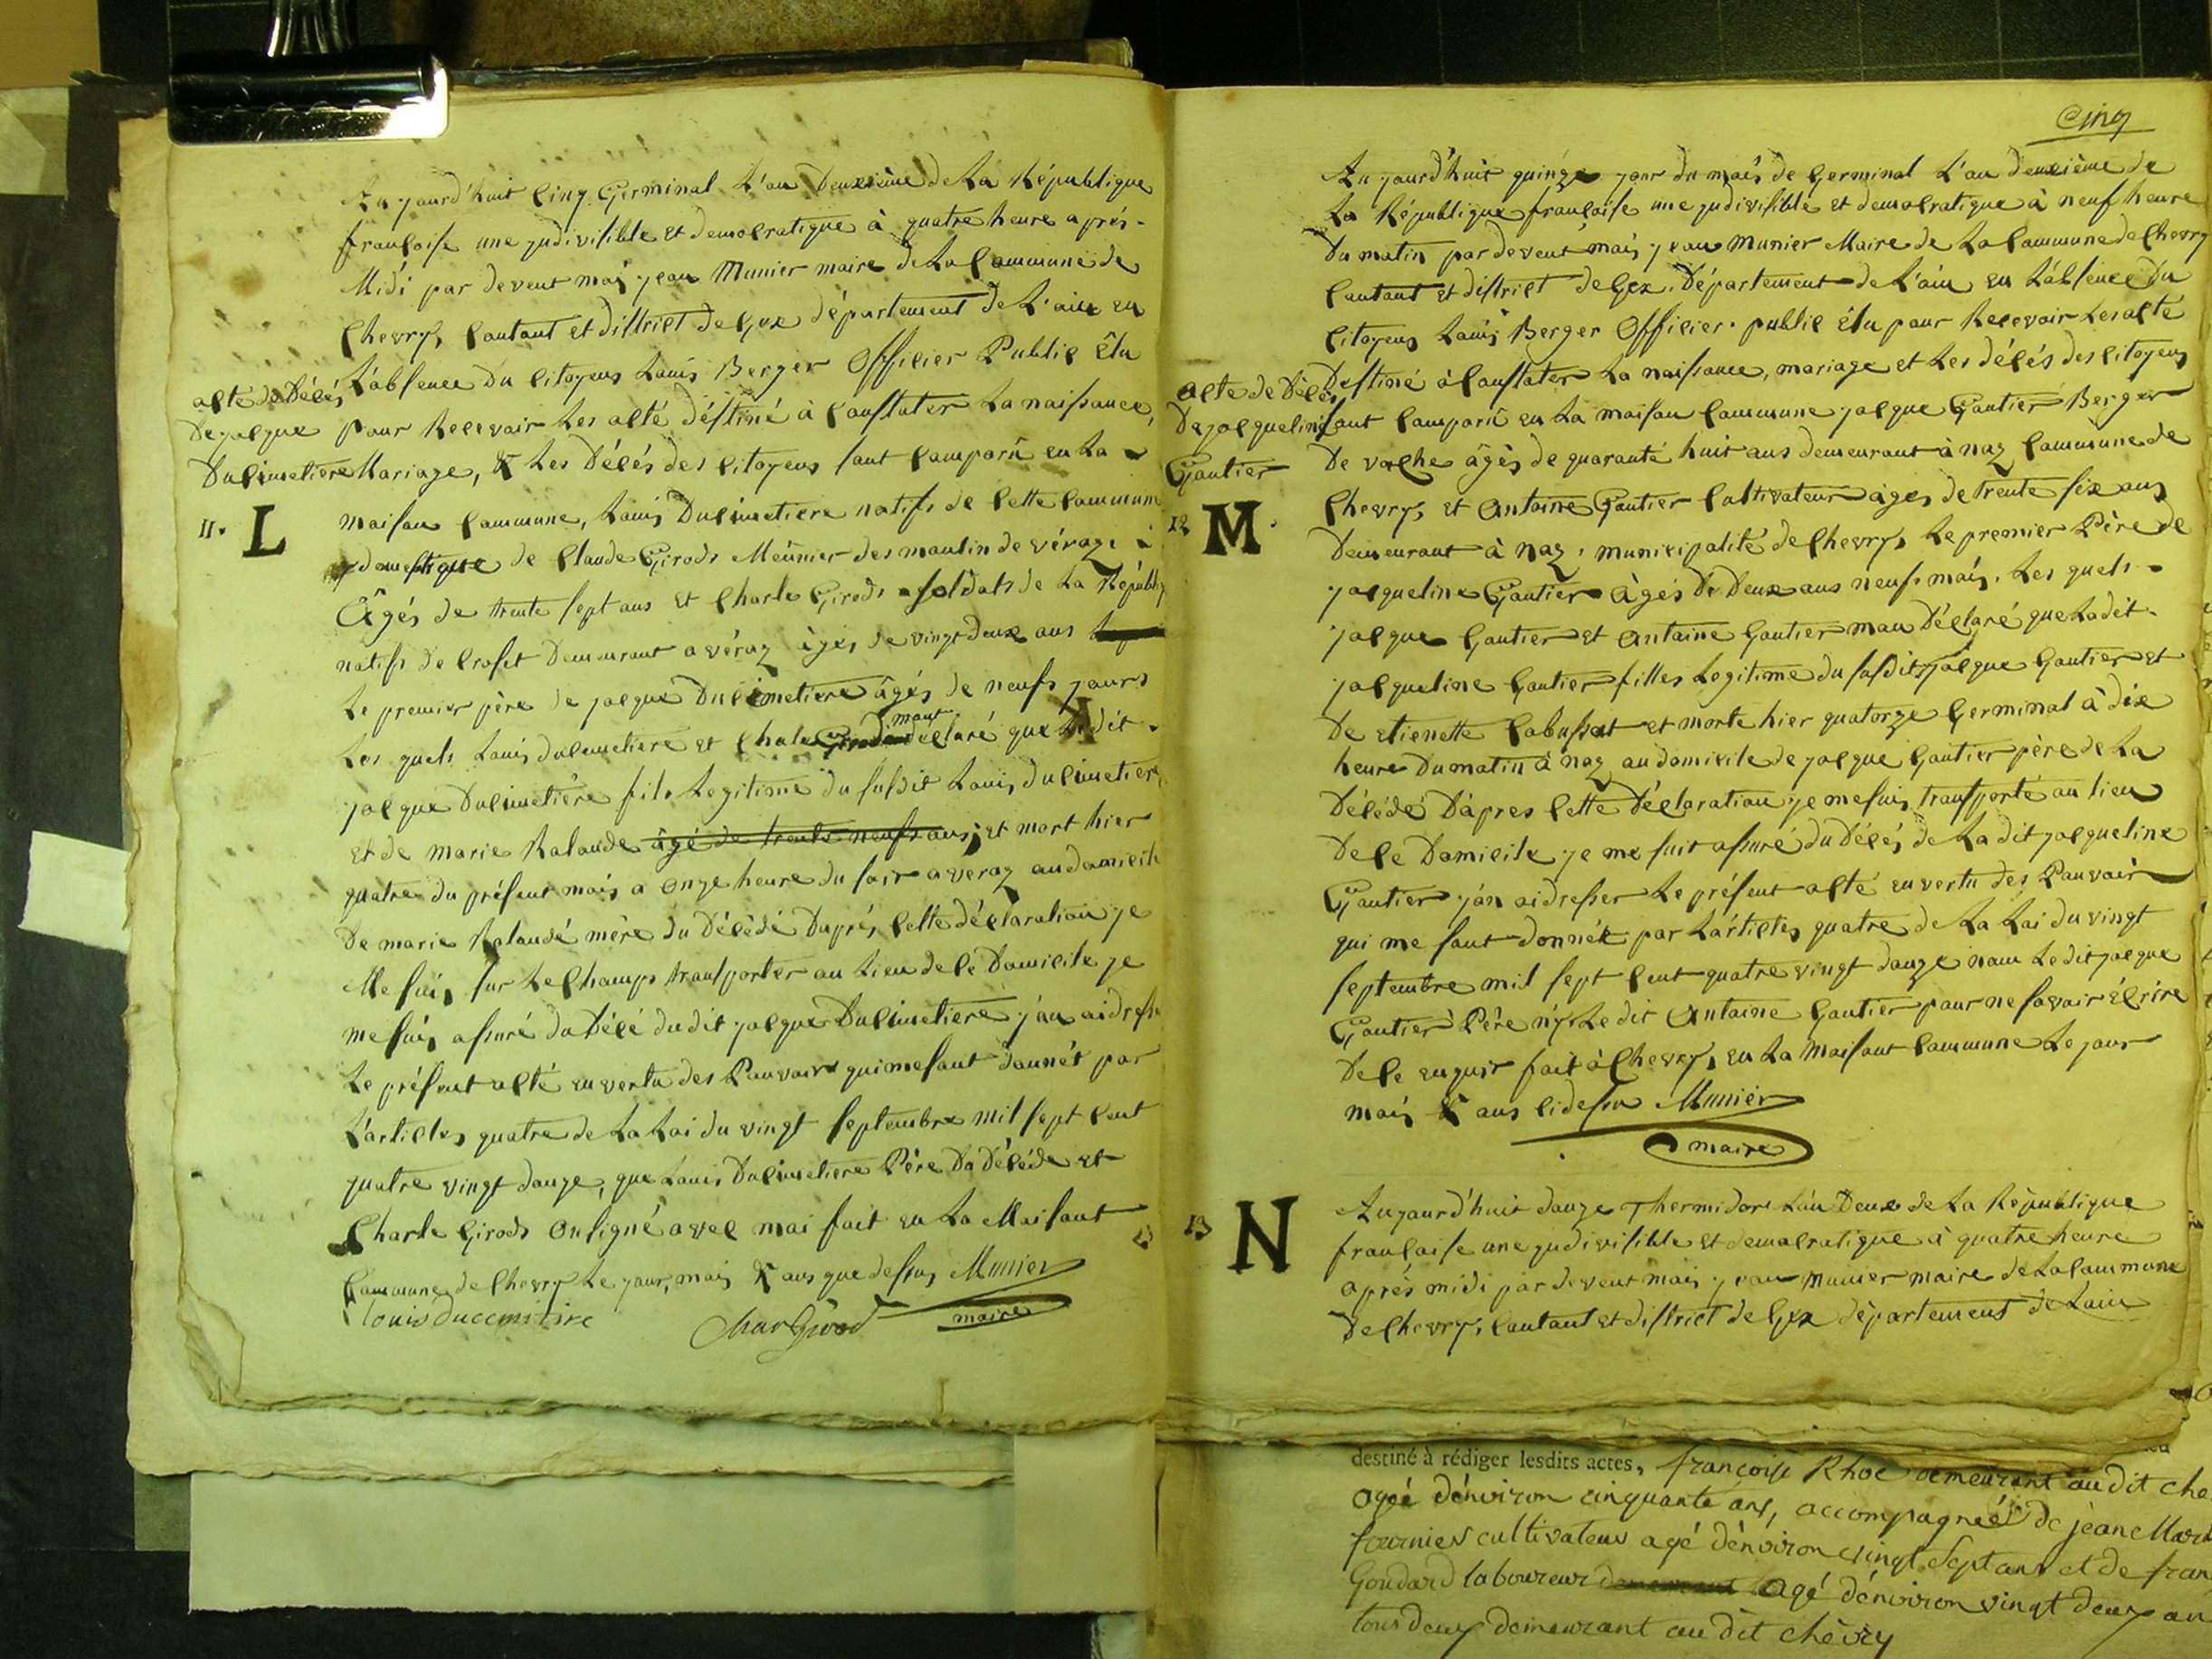 Au jourd'huit cinq Germinal L'an Deuxième de La République
francoise une jndivisible et democratique à quatre heure aprés-
Midi par devent moi jean Munier maire de La Commune de
Chevry, Cantant et district de Gex département de L'ain en
L'absence Du Citoyens Louis Berger Officier Public Élu
pour Recevoir Les acté déstiné à Constater La naissance,
Mariage, & Les Décés des Citoyens sont Comparü en La
acté de Décés
De jacque
Ducimetiere
11. L
maison Commune, Louis Ducimetiere natifs de Cette Commune
domestique de Claude Girods Meûnier des moulin de véraz, à
Âgés de trente sept ans et Charle Girods soldats de La Républ
natifs de Croset Demeurant a véraz âgés de vingt deux ans
Le premier père de jacque Ducimetiere âgés de neufs jours
Les quels Louis ducimetiere et Chale Girods mont déclaré que Ledit
jacque Ducimetière fils Legitime du susdit Louis ducimetiere
et de marie Kalaude âgé de trente neufs ans, et mort hier
quatre du présent mois a onze heure du soir a veraz au domicile
De marie Kalaudé mère du Décédé Daprés Cette déclaration je
Me suis sur Le Champs transporter au Lieu de Cé Domicile je
me suis assuré du Décé dudit jacque Ducimetiere j'an ai dresse
Le présent acté en vertu des Pouvoirs qui me sont donnét par
L'articles quatre de La Loi du vingt septembre mil sept Cent
quatre vingt douze, que Louis Ducimetiere Père Du Décéde et
Charle Girods on signé avec moi fait en La Maisont
Commune de Chevry Le jour, mois & ans que dessus Munier
maire
louis ducemitire
Char Girod
Cinq
Au jourd'huit quinze jour du mois de Germinal L'an deuxième de
La République francoise une jndivisible et democratique à neuf heure
Du matin par devent moi jean Munier Maire de La Commune de Chevry
Cantant et district de Gex, Département de L'ain en L'absence Du
Citoyens Louis Berger Officier public Élu pour Recevoir Les acté
Destiné à Constater La naissance, mariage et Les décés des Citoyens
sont Comparü en La maison Commune jacque Gautier Berger
De vache âgés de quaranté huit ans demeurant à naz Commune de
acte de Décés
De jacqueline
Gautier
12 M
Chevry, et Antoine Gautier Cultivateur âgés de trente six ans
Demeurant à naz, municipalité de Chevry, Le premier Père de
jacqueline Gautier Âgés De Deux ans neufs mois, Les quels
jacque Gautier et Antoine Gautier mon Déclaré que Ladit
jacqueline Gautier filles Legitime du susdits jacque Gautier et
De etienette Cabussat et morte hier quatorze Germinal à dix
heure Du matin à naz au domicile de jacque Gautier père de La
Décédé D'âpres Cette Déclaration je me suis transporté au lieu
De Ce Domicile je me suit assuré du Décés de La dit jacqueline
Gautier j'an ai dresser Le présent acté en vertu des Pouvoir
qui me sont donnét par L'articles quatre de La Loi du vingt
septembre mil sept Cent quatre vingt douze nom Ledit jacque
Gautier Père ny Le dit Antoine Gautier pour ne savoir écrire
De Ce enquir fait à Chevry, en La Maisont Commune Le jour
mois & ans Cidessu Munier
maire
13 N
Aujourd'huit douze Thermidor L'an Deux de La République
francoise une jndivisible et democratique à quatre heure
après midi par devent moi jean Munier maire de La Commune
De Chevry, Cantant et district de Gex département de Lain
destiné à rédiger lesdits actes, françoise Rhoe demeurant audit che
ageé dénviron cinquante ans, accompagneé de jeane Mari
fournier cultivateur agé dénviron vingt Sept ans et de fran
Goudard laboureur agé dénviron vingt deux an
tous deux demeurant au dit chévry